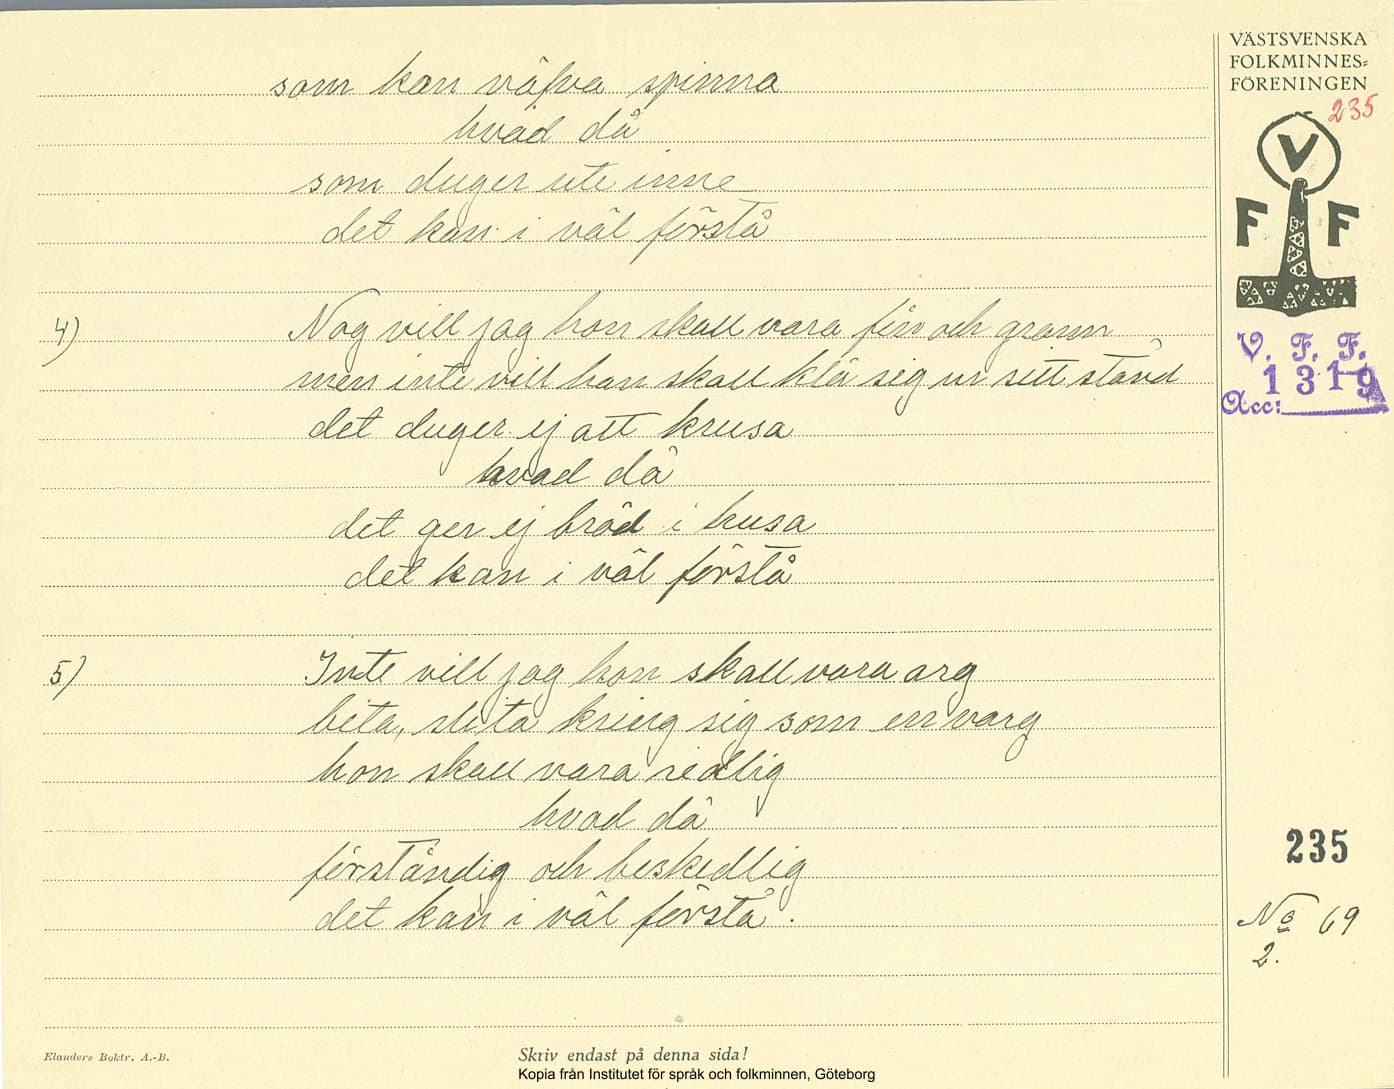 som kan väfva spinna
hvad då
som duger ute inne
det kan i väl förstå
4) Nog vill jag hon skall vara fin och grann
men inte vill han skall klä sig ur sitt stånd
det duger ej att krusa
hvad då
det ger ej bröd i husa
det kan i väl förstå
5) Inte vill jag hon skall vara arg
bita, slita kring sig som en varg
hon skall vara redlig
hvad då
förståndig och beskedlig
det kan i väl förstå.
VÄSTSVENSKA
FOLKMINNES=
FÖRENINGEN
235
V
F F
V. F. F.
1319
Acc:
235
No 69
2.
Elanders Boktr. A.-B.
Skriv endast på denna sida!
Kopia från Institutet för språk och folkminnen, Göteborg